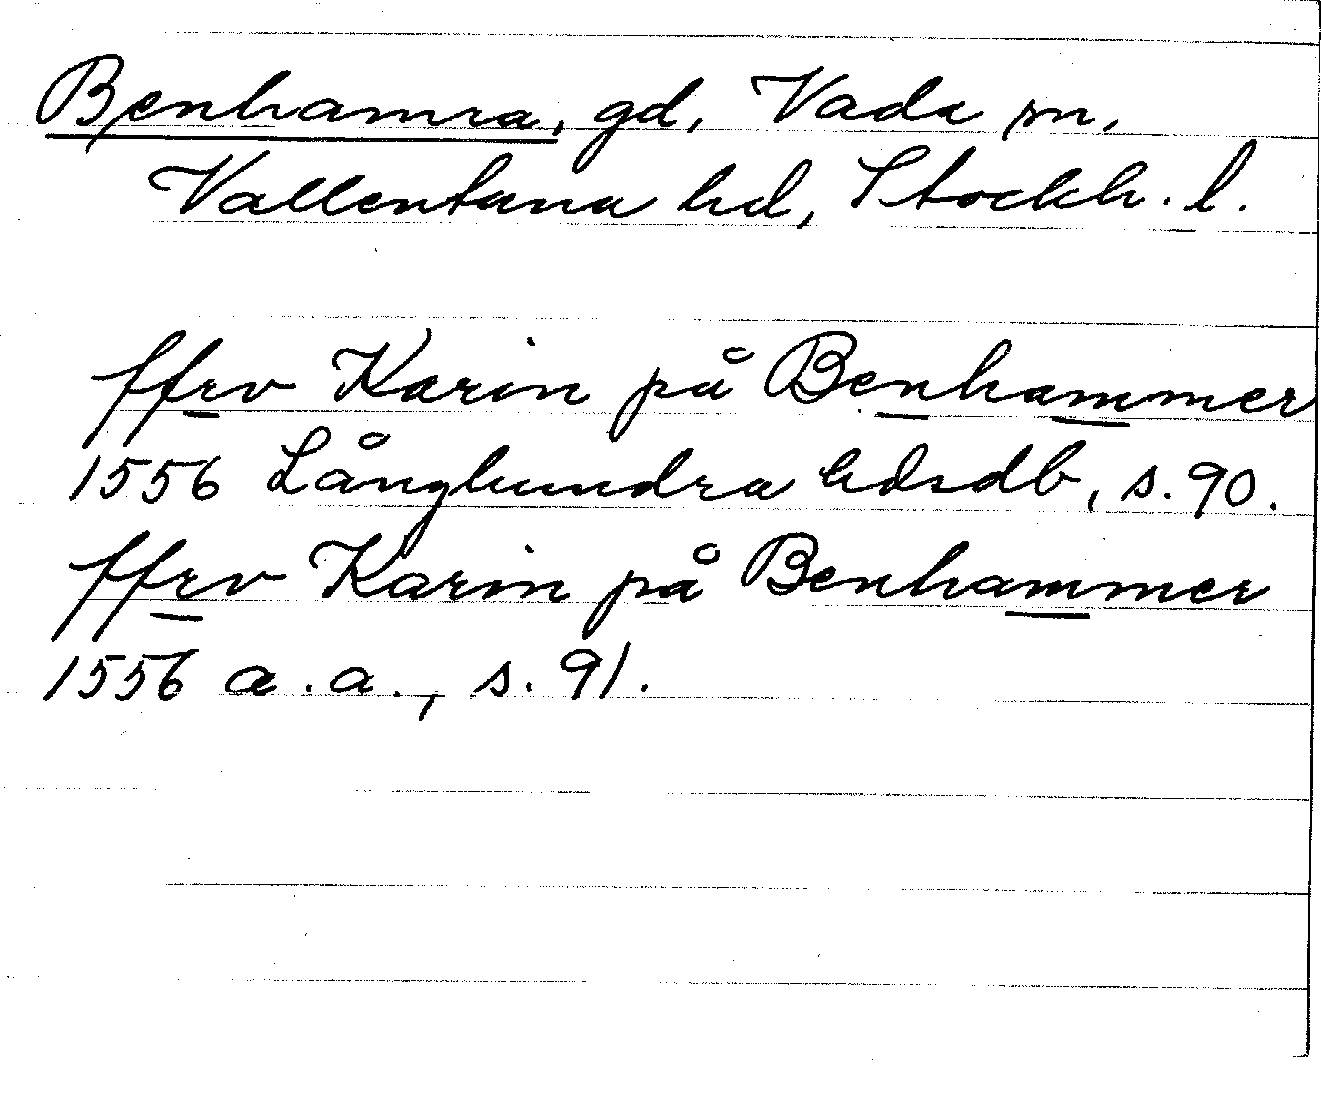 Benhamra, gd, Vada sn,
Vallentuna hd, Stockh. l.
ffrv Karin på Benhammer
1556 Långhundra hdsdb, s. 90.
ffrv Karin på Benhammer
1556 a. a., s. 91.